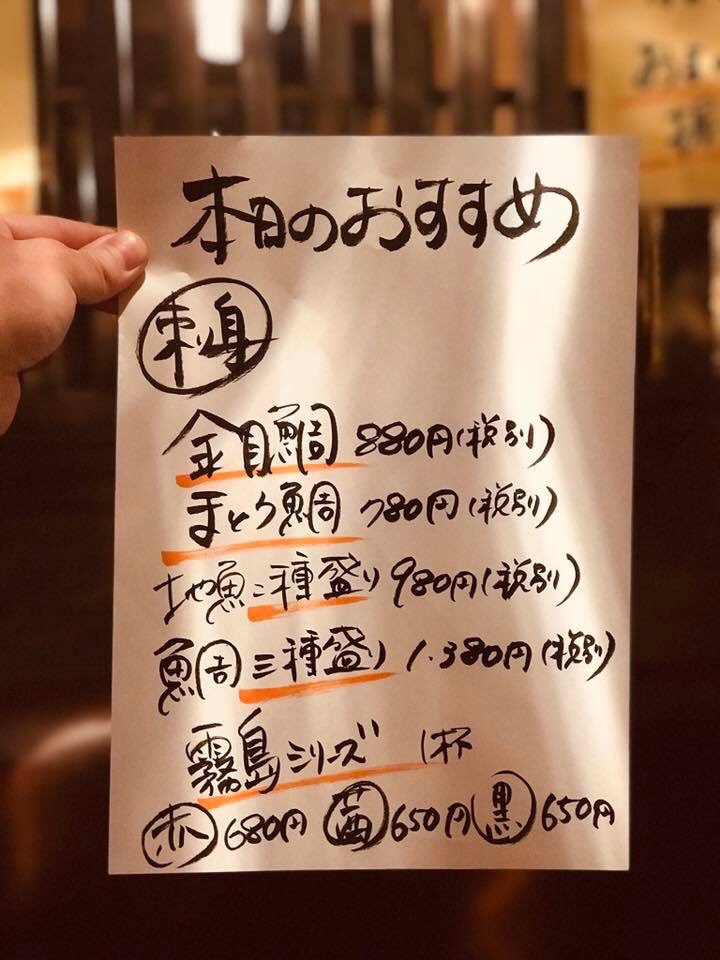 本日のおすすめ
刺身
金目鯛 880円(税別)
まとう鯛 780円(税別)
地魚二種盛り 980円(税別)
鯛三種盛り 1.380円(税別)
霧島シリーズ 1杯
赤 680円 茜 650円 黒 650円